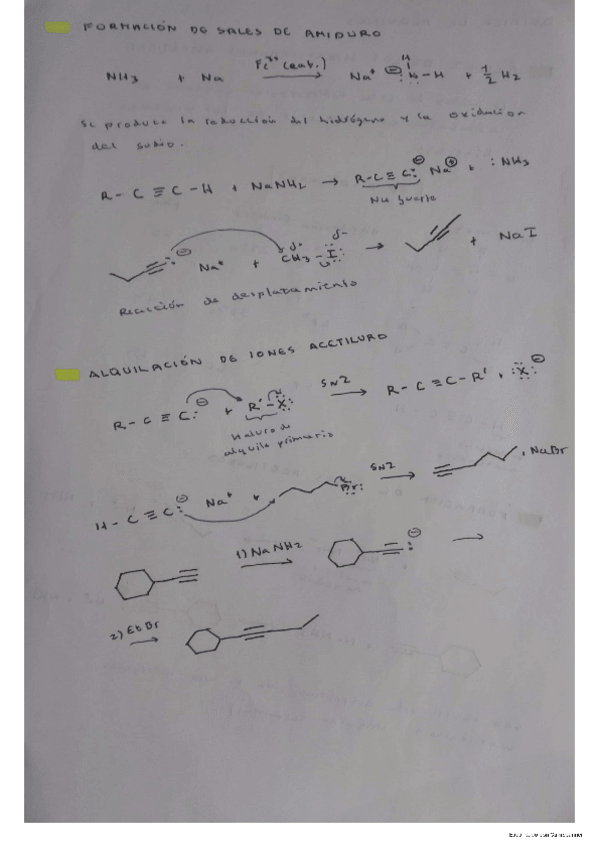 FORMACIÓN DE SALES DE AMIDURO
NH₃ + Na Fe³⁺ (cat.) → Na⁺ ⊖ :N-H + 1/2 H₂
H
Se produce la reducción del hidrógeno y la oxidacion
del sodio.
R-C≡C-H + NaNH₂ → R-C≡C:⊖ Na⊕ + :NH₃
Nu fuerte
⊖ Na⁺ + δ+ CH₃-I δ- → + NaI
Reacción de desplazamiento
ALQUILACIÓN DE IONES ACETILURO
R-C≡C:⊖ + R'-X SN2 → R-C≡C-R' + :X:⊖
haluro de
alquilo primario
H-C≡C:⊖ Na⁺ + Br: SN2 → + NaBr
1) NaNH₂ → :⊖ →
2) EtBr →